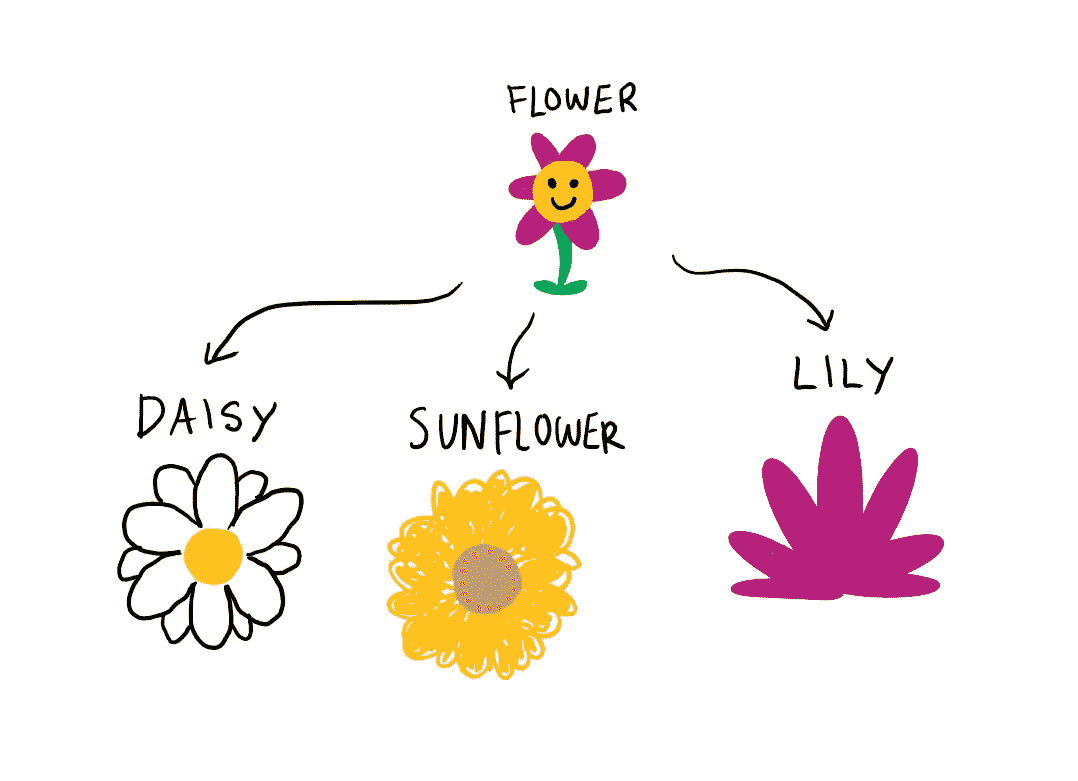 FLOWER
DAISY
SUNFLOWER
LILY